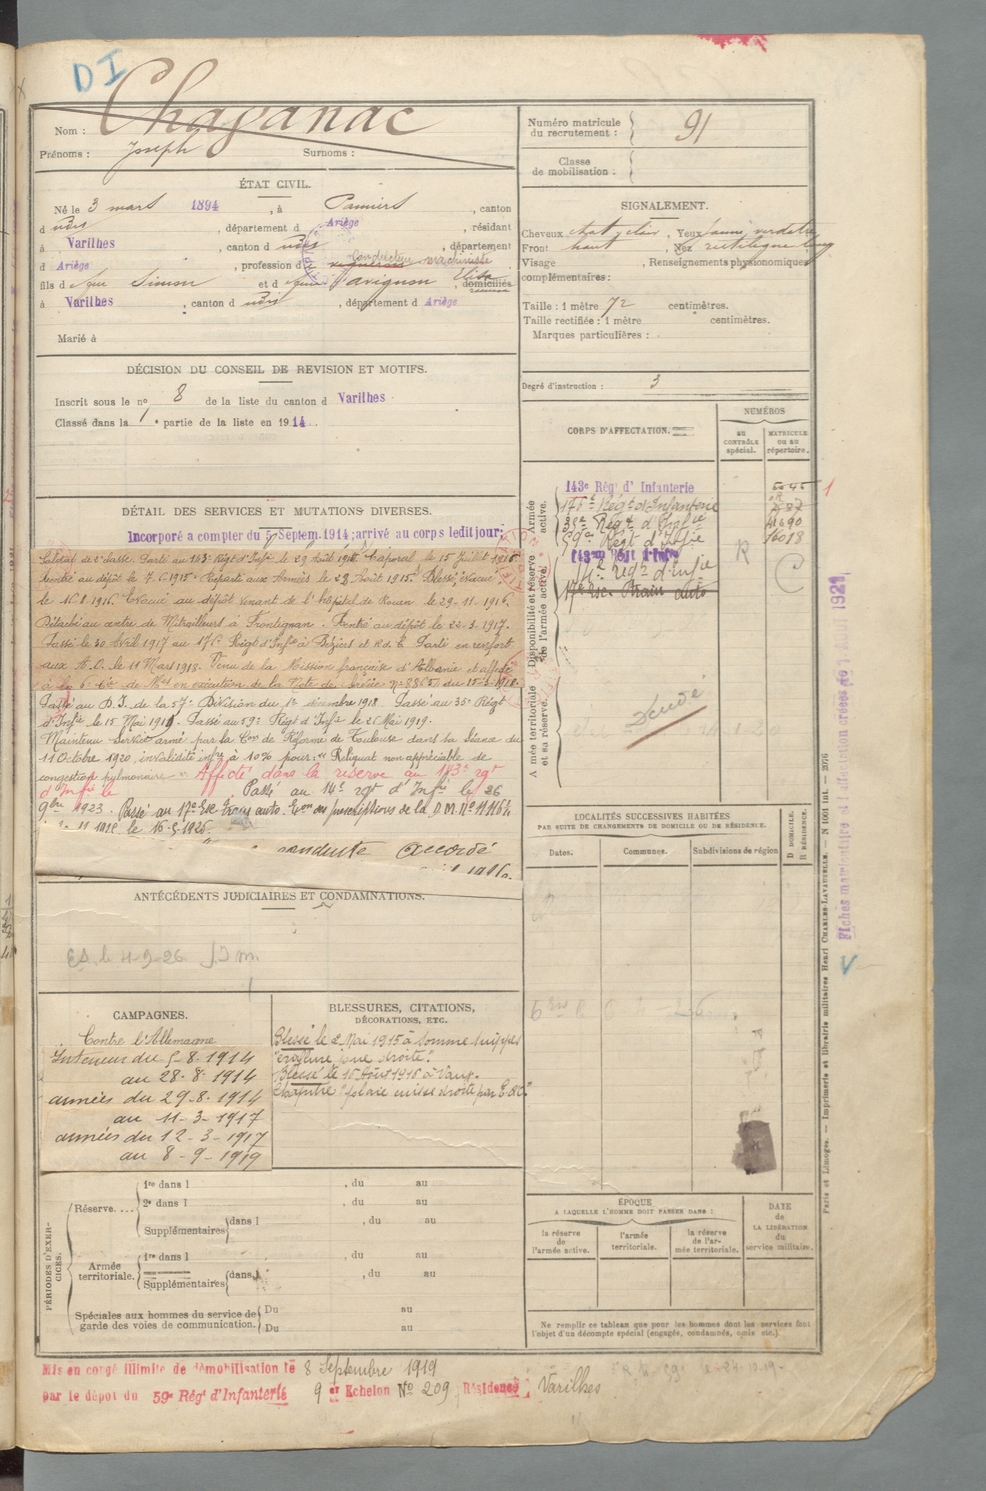 DI
Nom : Chapanac
Prénoms : Joseph Surnoms :
ÉTAT CIVIL.
Né le 3 mars 1894, à Pamiers, canton
d udis, département d Ariège, résidant
à Varilhes, canton d udis, département
d Ariège, profession d conducteur machiniste
fils d feu Simon et d feue Pavignon Elisa domiciliés
à Varilhes, canton d udis, département d Ariège
Marié à
DÉCISION DU CONSEIL DE REVISION ET MOTIFS.
Inscrit sous le no 8 de la liste du canton d Varilhes.
Classé dans la 1 e partie de la liste en 1914.
DÉTAIL DES SERVICES ET MUTATIONS DIVERSES.
Incorporé a compter du 5 Septem.1914; arrivé au corps ledit jour;
Soldat de 2e classe. Parti au 143e Régt d'Infie le 29 Août 1914 Caporal le 15 Juillet 1916
Rentré au dépôt le 7.6.1915. Reparti aux Armées le 28 Août 1915. Blessé, évacué
le 16.8.1916. Evacué au dépôt venant de l'hôpital de Rouen le 29-11-1916.
Détaché au centre de Mitrailleurs à Frontignan. Rentré au dépôt le 22-3-1917.
Passé le 30 Avril 1917 au 176e Régt d'Infie à Béziers et R.d.C Parti en renfort
aux A.O. le 11 Mars 1918. Venu de la Mission française d'Albanie et affecté
à la 6e Cie de Mes en exécution de la Note de Service no 8865/1 du 15-2-1918
Passé au D.I. de la 57e Division du 1er décembre 1918. Passé au 35e Régt
d'Infie le 15 Mai 1919. Passé au 59e Régt d'Infie le 26 Mai 1919.
Maintenu Service armé par la Con de Réforme de Toulouse dans la Séance du
11 Octobre 1920, invalidité infre à 10% pour: "Reliquat non appréciable de
congestion pulmonaire" Affecté dans la réserve au 143e rgt
d'Infie le Passé au 14e rgt d'Infie le 26
9bre 1923. Passé au 17e Esc. Train auto. Eon des prescriptions de la D.M. No 11164
le 16.5.1926.
conduite accordé
ANTÉCÉDENTS JUDICIAIRES ET CONDAMNATIONS.
CAMPAGNES.
Contre l'Allemagne
Intérieur du 5-8-1914
au 28-8-1914
armées du 29-8-1914
au 11-3-1917
armées du 12-3-1917
au 8-9-1919
BLESSURES, CITATIONS,
DÉCORATIONS, ETC.
Blessé le 2 Mai 1915 à Somme Suippes
"érosion joue droite".
Blessé le 16 Août 1916 à Vaux-
Chapitre "plaie cuisse droite par E.O."
PÉRIODES D'EXERCICES.
Réserve....
1re dans l , du au
2e dans l , du au
Supplémentaires dans l , du au
Armée territoriale.
1re dans l , du au
Supplémentaires dans l , du au
Spéciales aux hommes du service de garde des voies de communication.
Du au
Du au
Mis en congé illimité de démobilisation le 8 Septembre 1919
par le dépôt du 59e Régt d'Infanterie 9 er Echelon No 209 Résidence : Varilhes
Numéro matricule du recrutement : 91
Classe de mobilisation :
SIGNALEMENT.
Cheveux chat. clair, Yeux jaune verdâtre
Front haut, Nez rectiligne long
Visage , Renseignements physionomiques
complémentaires :
Taille : 1 mètre 72 centimètres.
Taille rectifiée : 1 mètre centimètres.
Marques particulières :
Degré d'instruction : 3
CORPS D'AFFECTATION.
NUMÉROS
AU CONTRÔLE spécial.
MATRICULE OU AU répertoire.
Armée active.
143e Régt d'Infanterie
176e Régt d'Infanterie
35e Régt d'Infie 4690
59e Régt d'Infie 16018
Disponibilité et réserve de l'armée active.
143me Régt d'Infie
14e Régt d'Infie
17e Esc. Train auto
R
C
Armée territoriale et sa réserve.
LOCALITÉS SUCCESSIVES HABITÉES
PAR SUITE DE CHANGEMENTS DE DOMICILE OU DE RÉSIDENCE.
Dates. Communes. Subdivisions de région
D DOMICILE. R RÉSIDENCE.
ÉPOQUE
A LAQUELLE L'HOMME DOIT PASSER DANS :
la réserve de l'armée active.
l'armée territoriale.
la réserve de l'armée territoriale.
DATE de LA LIBÉRATION du service militaire.
Ne remplir ce tableau que pour les hommes dont les services font
l'objet d'un décompte spécial (engagés, condamnés, omis etc.).
Paris et Limoges. — Imprimerie et librairie militaires Henri CHARLES-LAVAUZELLE.
Fiches matriculaire et d'affectation créées le 1 Août 1921